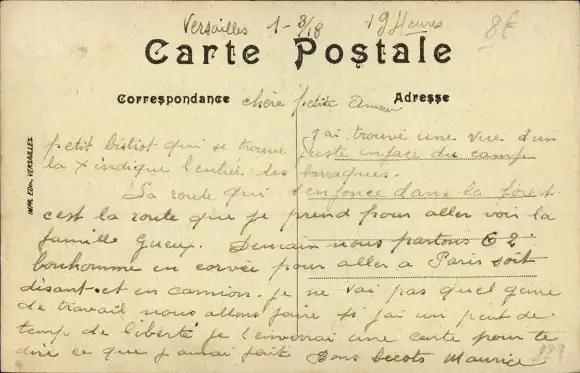 Versailles 1-3/18 19 Heures 8€
Carte Postale
Correspondance Adresse
chère petite
J'ai trouvé une vue d'un
petit bistiot qui se trouve juste enface du camp
la X indique l'entrée des baraques.
La route qui s'enfonce dans la forest
c'est la route que je prend pour aller voir la
famille Gueux. Demain nous partons 62
bonhomme en corvée pour aller a Paris soit
disant et en camion. je ne vai pas quel genre
de travail nous allons faire si j'ai un peut de
temp de liberté je t'enverrai une carte pour te
dire ce que j'aurai fait Bons becots Maurice
IMP. EDIA. VERSAILLES